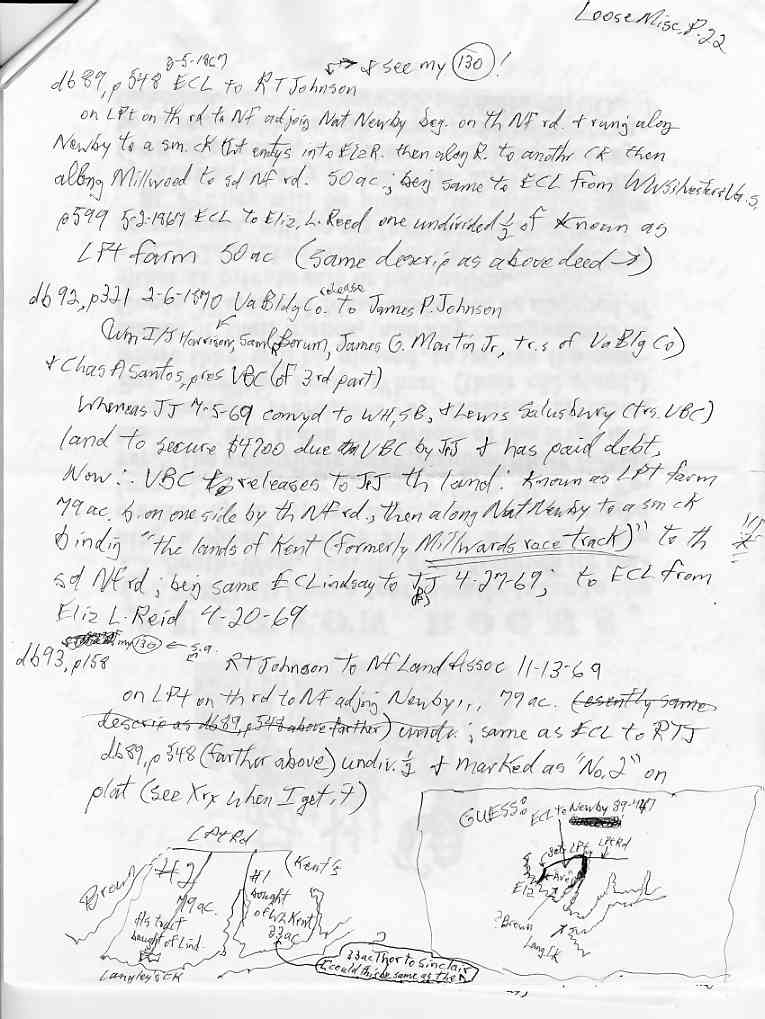 Loose Misc, P. 22
3-5-1867
& see my (130)!
db 89, p 548 ECL to RT Johnson
on LPt on th rd to Nf adjoig Nat Newby beg. on th Nf rd. & rung along
Newby to a sm. ck tht entys into Eliz R. then along R. to anothr ck then
along Millwood to sd Nf rd. 50 ac.; beig same to ECL from WW Silvester
p 599 5-2-1867 ECL to Eliz, L. Reed one undivided ½ of known as
LPt farm 50 ac (same descrip as above deed)
db 92, p 321 2-6-1870 Va Bldg Co. release to James P. Johnson
(Wm Harrison, Saml Borum, James G. Martin Jr, tr.s of Va Blg Co)
& Chas A Santos, pres VBC (of 3rd part)
Whereas JJ 7-5-69 convyd to WH, SB, & Lewis Salusbury (trs. VBC)
land to secure $4700 due VBC by JPJ & has paid debt,
Now ∴ VBC releases to JPJ th land: known as LPt farm
79 ac. b. on one side by th Nf rd., then along Nat Newby to a sm ck
bindig "the lands of Kent (formerly Millwards race track)" to th
sd Nf rd; beig same ECLindsay to JJ 4-27-69; to ECL from
Eliz L. Reid 4-20-69
my (130) ←
db 93, p 158 RT Johnson to Nf Land Assoc 11-13-69
on LPt on th rd to Nf adjoig Newby,,, 79 ac. (esently same
descrip as db 89, p 548 above farther) undv.; same as ECL to RTJ
db 89, p 548 (farther above) undiv. ½ & marked as "No. 2" on
plat (see Xrx when I get it)
GUESS: ECL to Newby 89-
LPt Rd
LPt Rd
Brown
#2
79 ac.
this tract
bought of Lind.
#1
bought
of Wh Kent
33 ac
(Kent's
Eliz
?Brown
Lang Ck
Langley's Ck
?
33 ac Thor to Sinclair
(could this be same as the